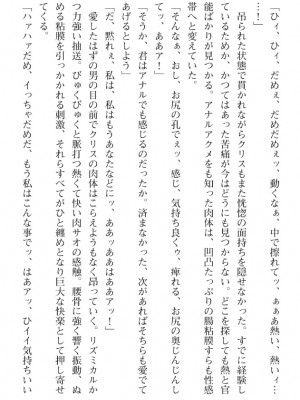 「ひィ、ひィ、だめぇ、だめぇッ、動くなぁ、中で擦れてッ、ぁぁぁ熱い、熱いィ
…！」
吊られた状態で貫かれながらクリスもまた恍惚の面持ちを隠せなかった。すでに経験し
ているためか、かつてはあった苦痛が今はどうにも見つからない。どこを探しても熱と官
能ばかりが見つかる。アナルアクメをも知った肉体は、凹凸たっぷりの腸粘膜すらも性感
帯へと変えていた。
「そんなぁ、おし、お尻の孔でぇッ、感じ、気持ち良くゥ、痺れる、お尻の奥じんじんし
てッ、ああァ！」
「そうか、君はアナルでも感じるのだったか。済まなかった、次があればそちらも愛でて
あげるとしよう」
「だ、黙れぇ、私は、私はもうあなたなどにッ、あぁッああはああァッ！」
愛したはずの男の目の前でクリスの肉体はこらえようもなく昂っていく。リズミカルか
つ力強い抽送。びゅくびゅくと脈打つ熱くて快い肉サオの感触。腰骨に強く響く振動、ぬ
める粘膜を引っかかれる刺激、それらすべてがひと纏めとなり巨大な快楽として押し寄せ
てくる。
「ハァハァだめ、イっちゃだめだ、もう私はこんな事でッ、はあアッ、ひィイ気持ちいい